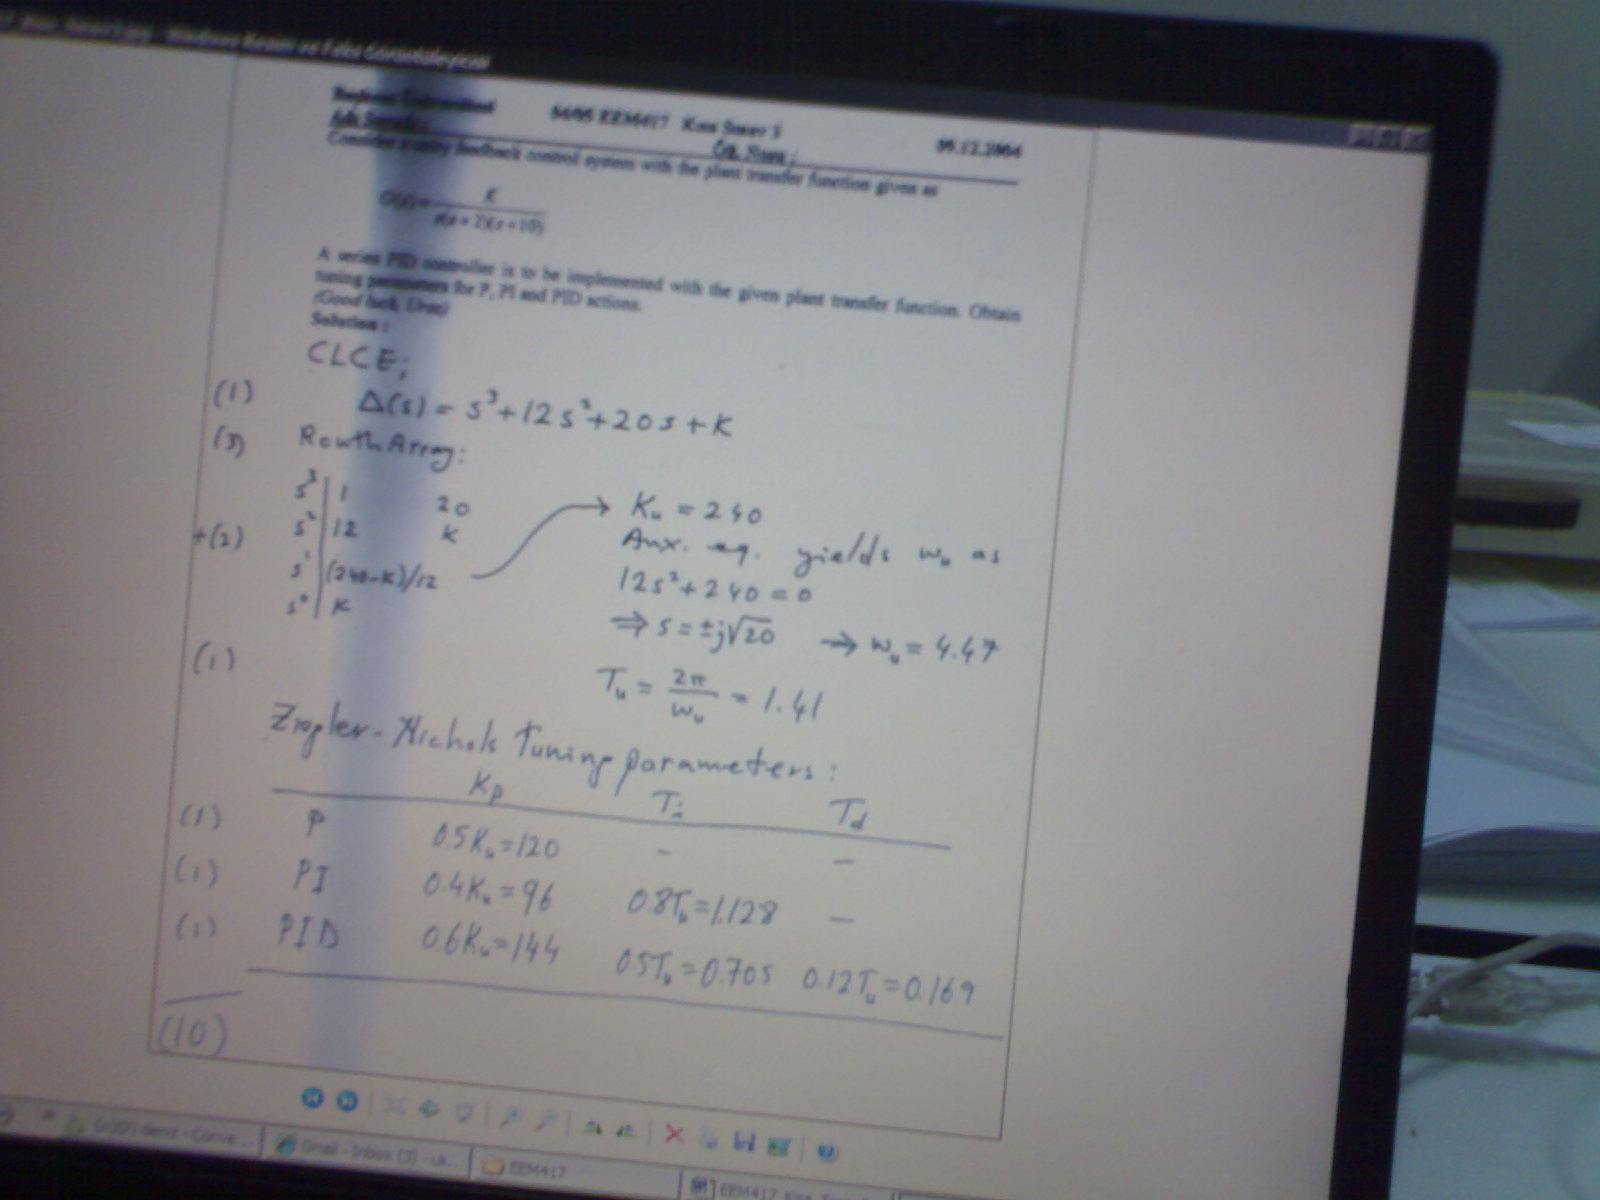 Windows Resim ve Faks Görüntüleyicisi
04/05 EEM417 Kısa Sınav 5 09.12.2004
Adı Soyadı: Öğr. Num.:
Consider a unity feedback control system with the plant transfer function given as
G(s)= K
s(s+2)(s+10)
A series PID controller is to be implemented with the given plant transfer function. Obtain
tuning parameters for P, PI and PID actions.
(Good luck, Uran)
Solution :
CLCE;
(1) Δ(s) = s³+12s²+20s+K
(3) Routh Array:
s³ | 1 20
+(2) s² | 12 K
s¹ | (240-K)/12
s⁰ | K
→ Ku = 240
Aux. eq. yields wu as
12s²+240=0
⇒ s=±j√20 → wu = 4.47
(1) Tu = 2π/wu = 1.41
Ziegler-Nichols Tuning parameters:
Kp Ti Td
(1) P 0.5Ku=120 — —
(1) PI 0.4Ku=96 0.8Tu=1.128 —
(1) PID 0.6Ku=144 0.5Tu=0.705 0.12Tu=0.169
(10)
Gmail - Inbox (3) - uk...
EEM417